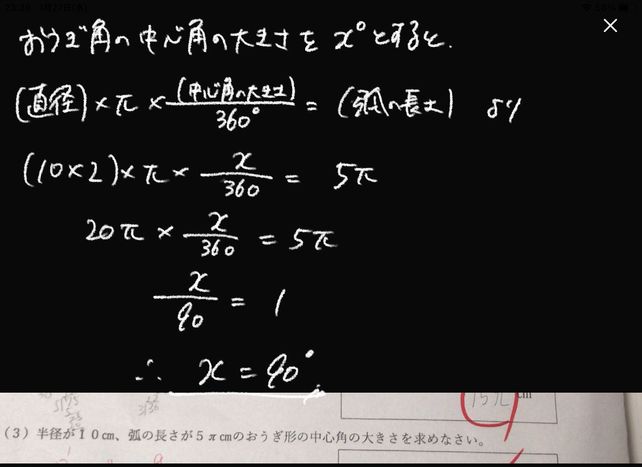 おうぎ角の中心角の大きさを x°とすると、
(直径)×π×(中心角の大きさ)/360° = (弧の長さ) より
(10×2)×π×x/360 = 5π
20π × x/360 = 5π
x/90 = 1
∴ x = 90°
15π cm
(3) 半径が10㎝、弧の長さが5π㎝のおうぎ形の中心角の大きさを求めなさい。